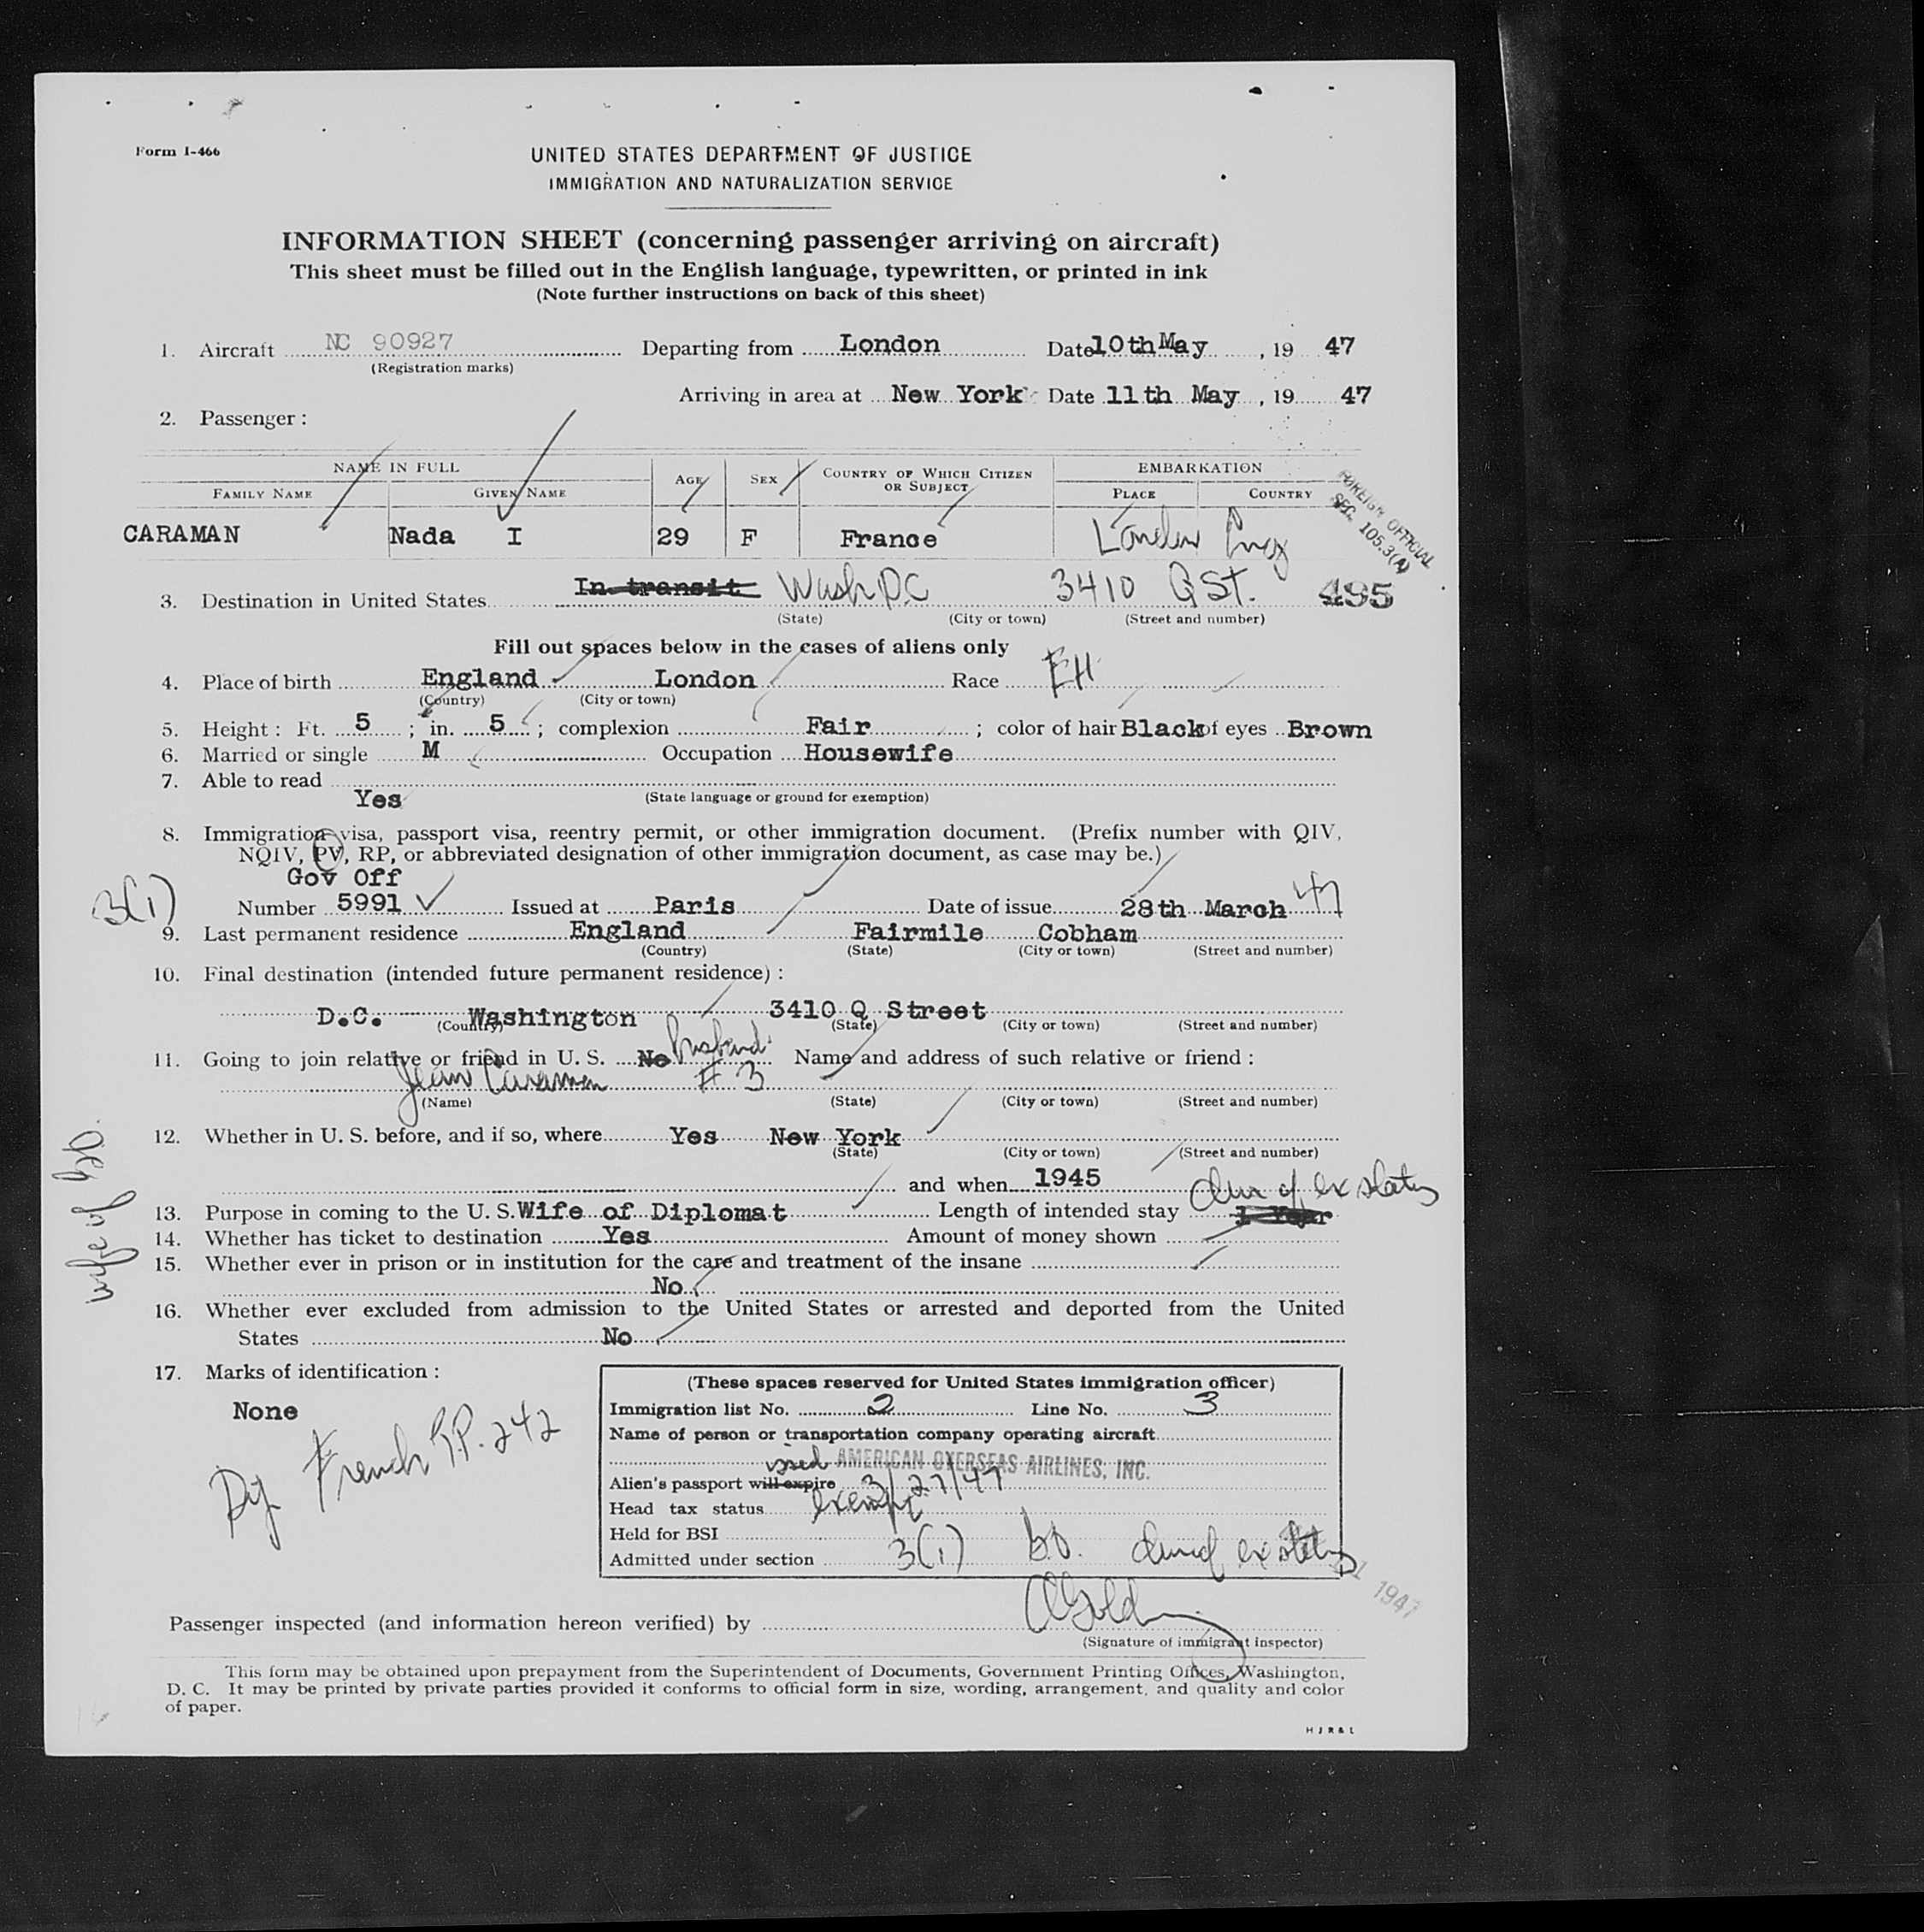 Form I-466
UNITED STATES DEPARTMENT OF JUSTICE
IMMIGRATION AND NATURALIZATION SERVICE
INFORMATION SHEET (concerning passenger arriving on aircraft)
This sheet must be filled out in the English language, typewritten, or printed in ink
(Note further instructions on back of this sheet)
1. Aircraft NC 90927 Departing from London Date 10th May, 19 47
(Registration marks)
Arriving in area at New York Date 11th May, 19 47
2. Passenger:
NAME IN FULL AGE SEX COUNTRY OF WHICH CITIZEN OR SUBJECT EMBARKATION
FAMILY NAME GIVEN NAME PLACE COUNTRY
CARAMAN Nada I 29 F France London Eng
FOREIGN OFFICIAL
SEC. 105.3(A)
3. Destination in United States In transit Wash DC 3410 Q St. 495
(State) (City or town) (Street and number)
Fill out spaces below in the cases of aliens only
4. Place of birth England London Race EH
(Country) (City or town)
5. Height: Ft. 5; in. 5; complexion Fair; color of hair Black of eyes Brown
6. Married or single M Occupation Housewife
7. Able to read
Yes (State language or ground for exemption)
8. Immigration visa, passport visa, reentry permit, or other immigration document. (Prefix number with QIV,
NQIV, PV, RP, or abbreviated designation of other immigration document, as case may be.)
Gov Off
3(1) Number 5991 Issued at Paris Date of issue 28th March 47
9. Last permanent residence England Fairmile Cobham
(Country) (State) (City or town) (Street and number)
10. Final destination (intended future permanent residence):
D.C. Washington 3410 Q Street
(Country) (State) (City or town) (Street and number)
11. Going to join relative or friend in U. S. No husband Name and address of such relative or friend:
Jean Caraman # 3
(Name) (State) (City or town) (Street and number)
12. Whether in U. S. before, and if so, where Yes New York
(State) (City or town) (Street and number)
and when 1945
13. Purpose in coming to the U. S. Wife of Diplomat Length of intended stay 1 Year
of
14. Whether has ticket to destination Yes Amount of money shown
15. Whether ever in prison or in institution for the care and treatment of the insane
No
16. Whether ever excluded from admission to the United States or arrested and deported from the United
States No
wife of
17. Marks of identification:
None
French P.P. 242
(These spaces reserved for United States immigration officer)
Immigration list No. 2 Line No. 3
Name of person or transportation company operating aircraft
AMERICAN OVERSEAS AIRLINES, INC.
issd
Alien's passport will expire 3/27/47
Head tax status exempt
Held for BSI
Admitted under section 3(1)
1947
Passenger inspected (and information hereon verified) by
(Signature of immigrant inspector)
This form may be obtained upon prepayment from the Superintendent of Documents, Government Printing Offices, Washington,
D. C. It may be printed by private parties provided it conforms to official form in size, wording, arrangement, and quality and color
of paper.
H J R & L